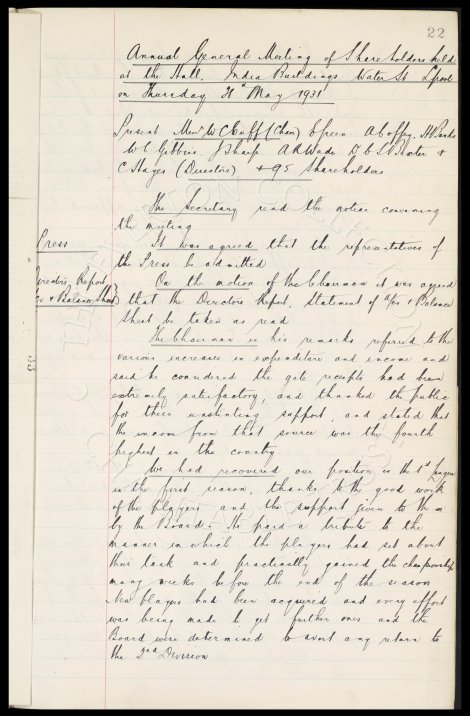 22
Annual General Meeting of Shareholders held
at the Hall, India Buildings Water St L'pool
on Thursday 21st May 1931
Present Messrs W C Cuff (Chair) E Green A Coffey,
W C Gibbins, J Sharp A R Wade &
C S Hayes (Directors) + 95 Shareholders
The Secretary read the notice convening
the meeting
Press
It was agreed that the representatives of
the Press be admitted
Directors Report
On the motion of the Chairman it was agreed
& Balance Sheet
that the Directors Report, Statement of a/cs & Balance
Sheet be taken as read
The Chairman in his remarks referred to the
various increases in expenditure and income and
said he considered the gate receipts had been
extremely satisfactory, and thanked the public
for their unstinting support, and stated that
the income from that source was the fourth
highest in the country
33
We had recovered our position in the 1st League
in the first season, thanks to the good work
of the players and the support given to them
by the Board. He paid a tribute to the
manner in which the players had set about
their task and practically gained the championship
many weeks before the end of the season
New players had been acquired and every effort
was being made to get further ones and the
Board were determined to avert any return to
the 2nd Division